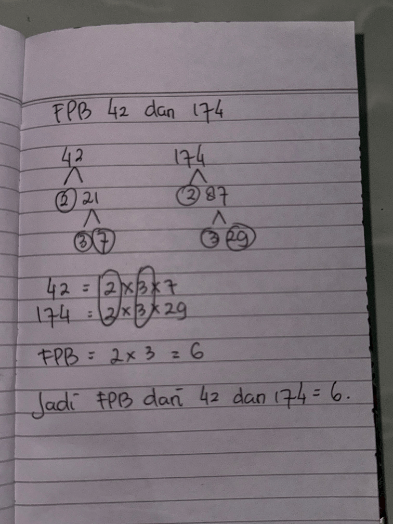 FPB 42 dan 174
42 174
2 21 2 87
3 7 3 29
42 = 2 x 3 x 7
174 = 2 x 3 x 29
FPB = 2 x 3 = 6
Jadi FPB dari 42 dan 174 = 6.